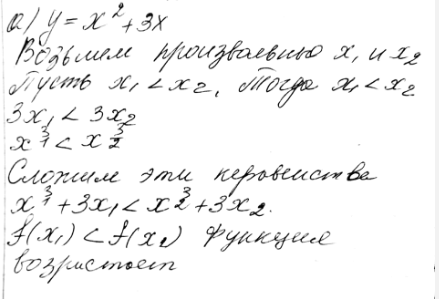 а) y = x² + 3x
Возьмем произвольно x₁ и x₂
Пусть x₁ < x₂, тогда x₁ < x₂
3x₁ < 3x₂
x₁³ < x₂³
Сложим эти неравенства
x₁³ + 3x₁ < x₂³ + 3x₂.
f(x₁) < f(x₂) функция
возрастает